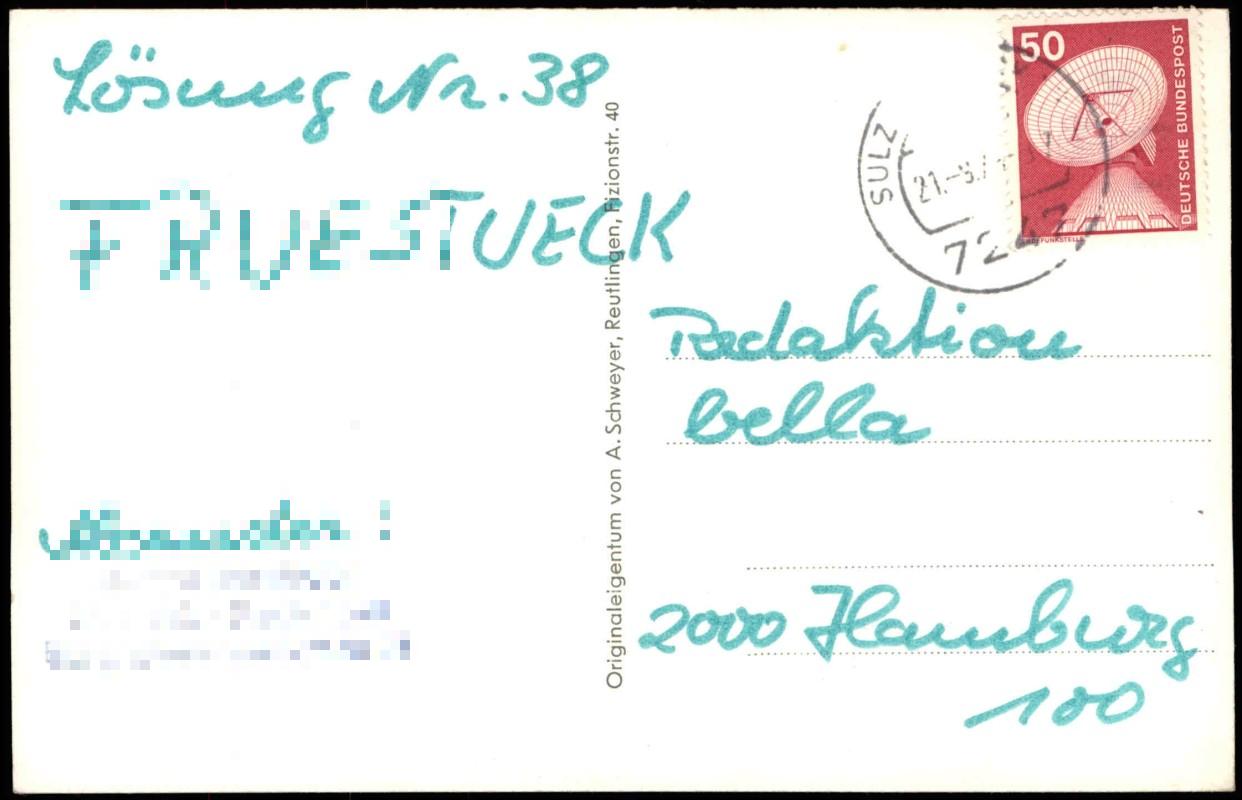 Lösung Nr. 38
FRUESTUECK
Originaleigentum von A. Schweyer, Reutlingen, Fizionstr. 40
50
DEUTSCHE BUNDESPOST
ERDEFUNKSTELLE
SULZ
21.-9.7
Redaktion
bella
2000 Hamburg
100